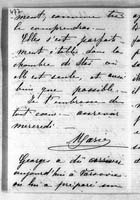 ment, comme tu
le comprendras.
Elles s'est parfait
ment établi dans la
chambre de Stas où
elle est seule et aussi
bien que possible. —
Je t'embrasse de
tout cœur — au revoir
mercredi.
Marie
Georges a dû arriver
aujourd'hui à Varsovie
on lui a préparé son